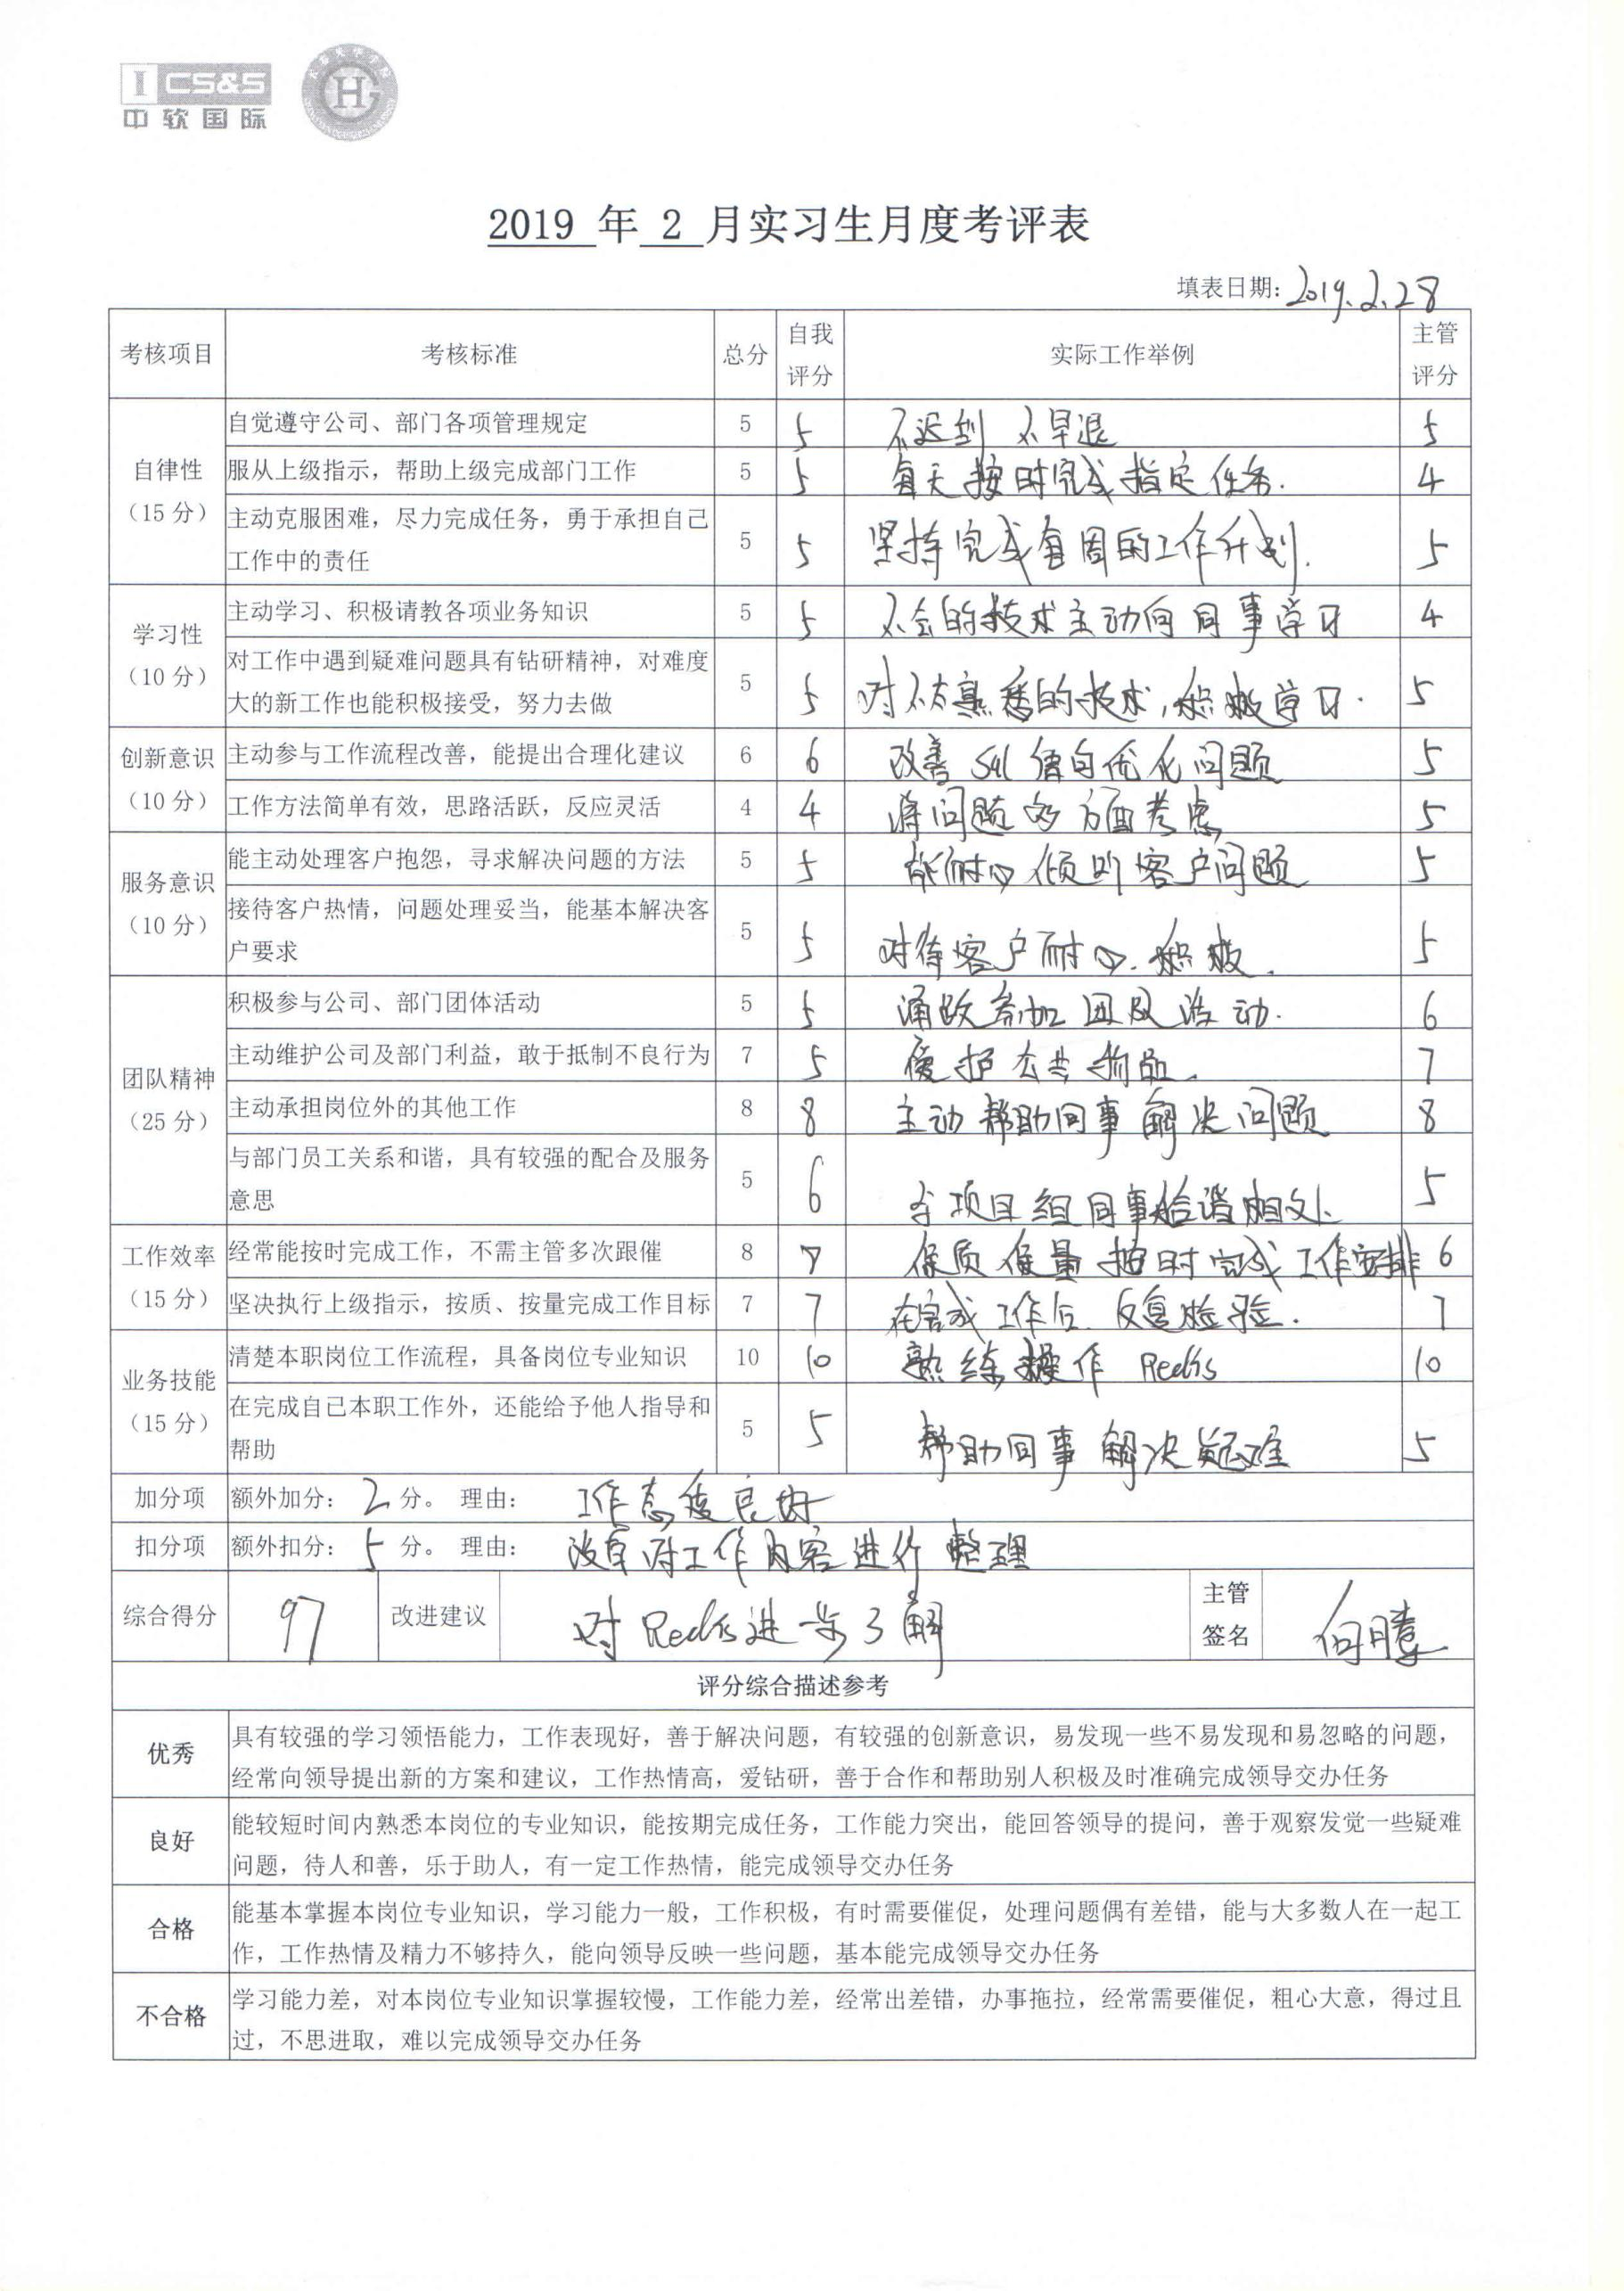 I CS&S
中软国际
H
2019 年 2 月实习生月度考评表
填表日期: 2019.2.28
考核项目 考核标准 总分 自我评分 实际工作举例 主管评分
自律性（15 分）
自觉遵守公司、部门各项管理规定 5 5 不迟到 不早退 5
服从上级指示，帮助上级完成部门工作 5 5 每天按时完成指定任务. 4
主动克服困难，尽力完成任务，勇于承担自己
工作中的责任 5 5 坚持完成每周的工作计划. 5
学习性（10 分）
主动学习、积极请教各项业务知识 5 5 不会的技术主动向同事学习 4
对工作中遇到疑难问题具有钻研精神，对难度
大的新工作也能积极接受，努力去做 5 5 对不太熟悉的技术,积极学习. 5
创新意识（10 分）
主动参与工作流程改善，能提出合理化建议 6 6 改善 优化问题 5
工作方法简单有效，思路活跃，反应灵活 4 4 将问题多方面考虑 5
服务意识（10 分）
能主动处理客户抱怨，寻求解决问题的方法 5 5 能耐心倾听客户问题 5
接待客户热情，问题处理妥当，能基本解决客
户要求 5 5 对待客户耐心. 积极. 5
团队精神（25 分）
积极参与公司、部门团体活动 5 5 参加团队活动. 6
主动维护公司及部门利益，敢于抵制不良行为 7 5 爱护公共物品. 7
主动承担岗位外的其他工作 8 8 主动帮助同事解决问题 8
与部门员工关系和谐，具有较强的配合及服务
意思 5 6 与项目组同事和谐相处 5
工作效率（15 分）
经常能按时完成工作，不需主管多次跟催 8 7 保质保量 按时完成工作安排 6
坚决执行上级指示，按质、按量完成工作目标 7 7 在完成工作后. 反复检验. 7
业务技能（15 分）
清楚本职岗位工作流程，具备岗位专业知识 10 10 熟练操作 Redis 10
在完成自己本职工作外，还能给予他人指导和
帮助 5 5 帮助同事解决疑难 5
加分项 额外加分: 2 分。 理由: 工作态度良好
扣分项 额外扣分: 5 分。 理由: 没有对工作内容进行整理
综合得分 97 改进建议 对Redis进一步了解 主管签名 何腾
评分综合描述参考
优秀
具有较强的学习领悟能力，工作表现好，善于解决问题，有较强的创新意识，易发现一些不易发现和易忽略的问题，
经常向领导提出新的方案和建议，工作热情高，爱钻研，善于合作和帮助别人积极及时准确完成领导交办任务
良好
能较短时间内熟悉本岗位的专业知识，能按期完成任务，工作能力突出，能回答领导的提问，善于观察发觉一些疑难
问题，待人和善，乐于助人，有一定工作热情，能完成领导交办任务
合格
能基本掌握本岗位专业知识，学习能力一般，工作积极，有时需要催促，处理问题偶有差错，能与大多数人在一起工
作，工作热情及精力不够持久，能向领导反映一些问题，基本能完成领导交办任务
不合格
学习能力差，对本岗位专业知识掌握较慢，工作能力差，经常出差错，办事拖拉，经常需要催促，粗心大意，得过且
过，不思进取，难以完成领导交办任务